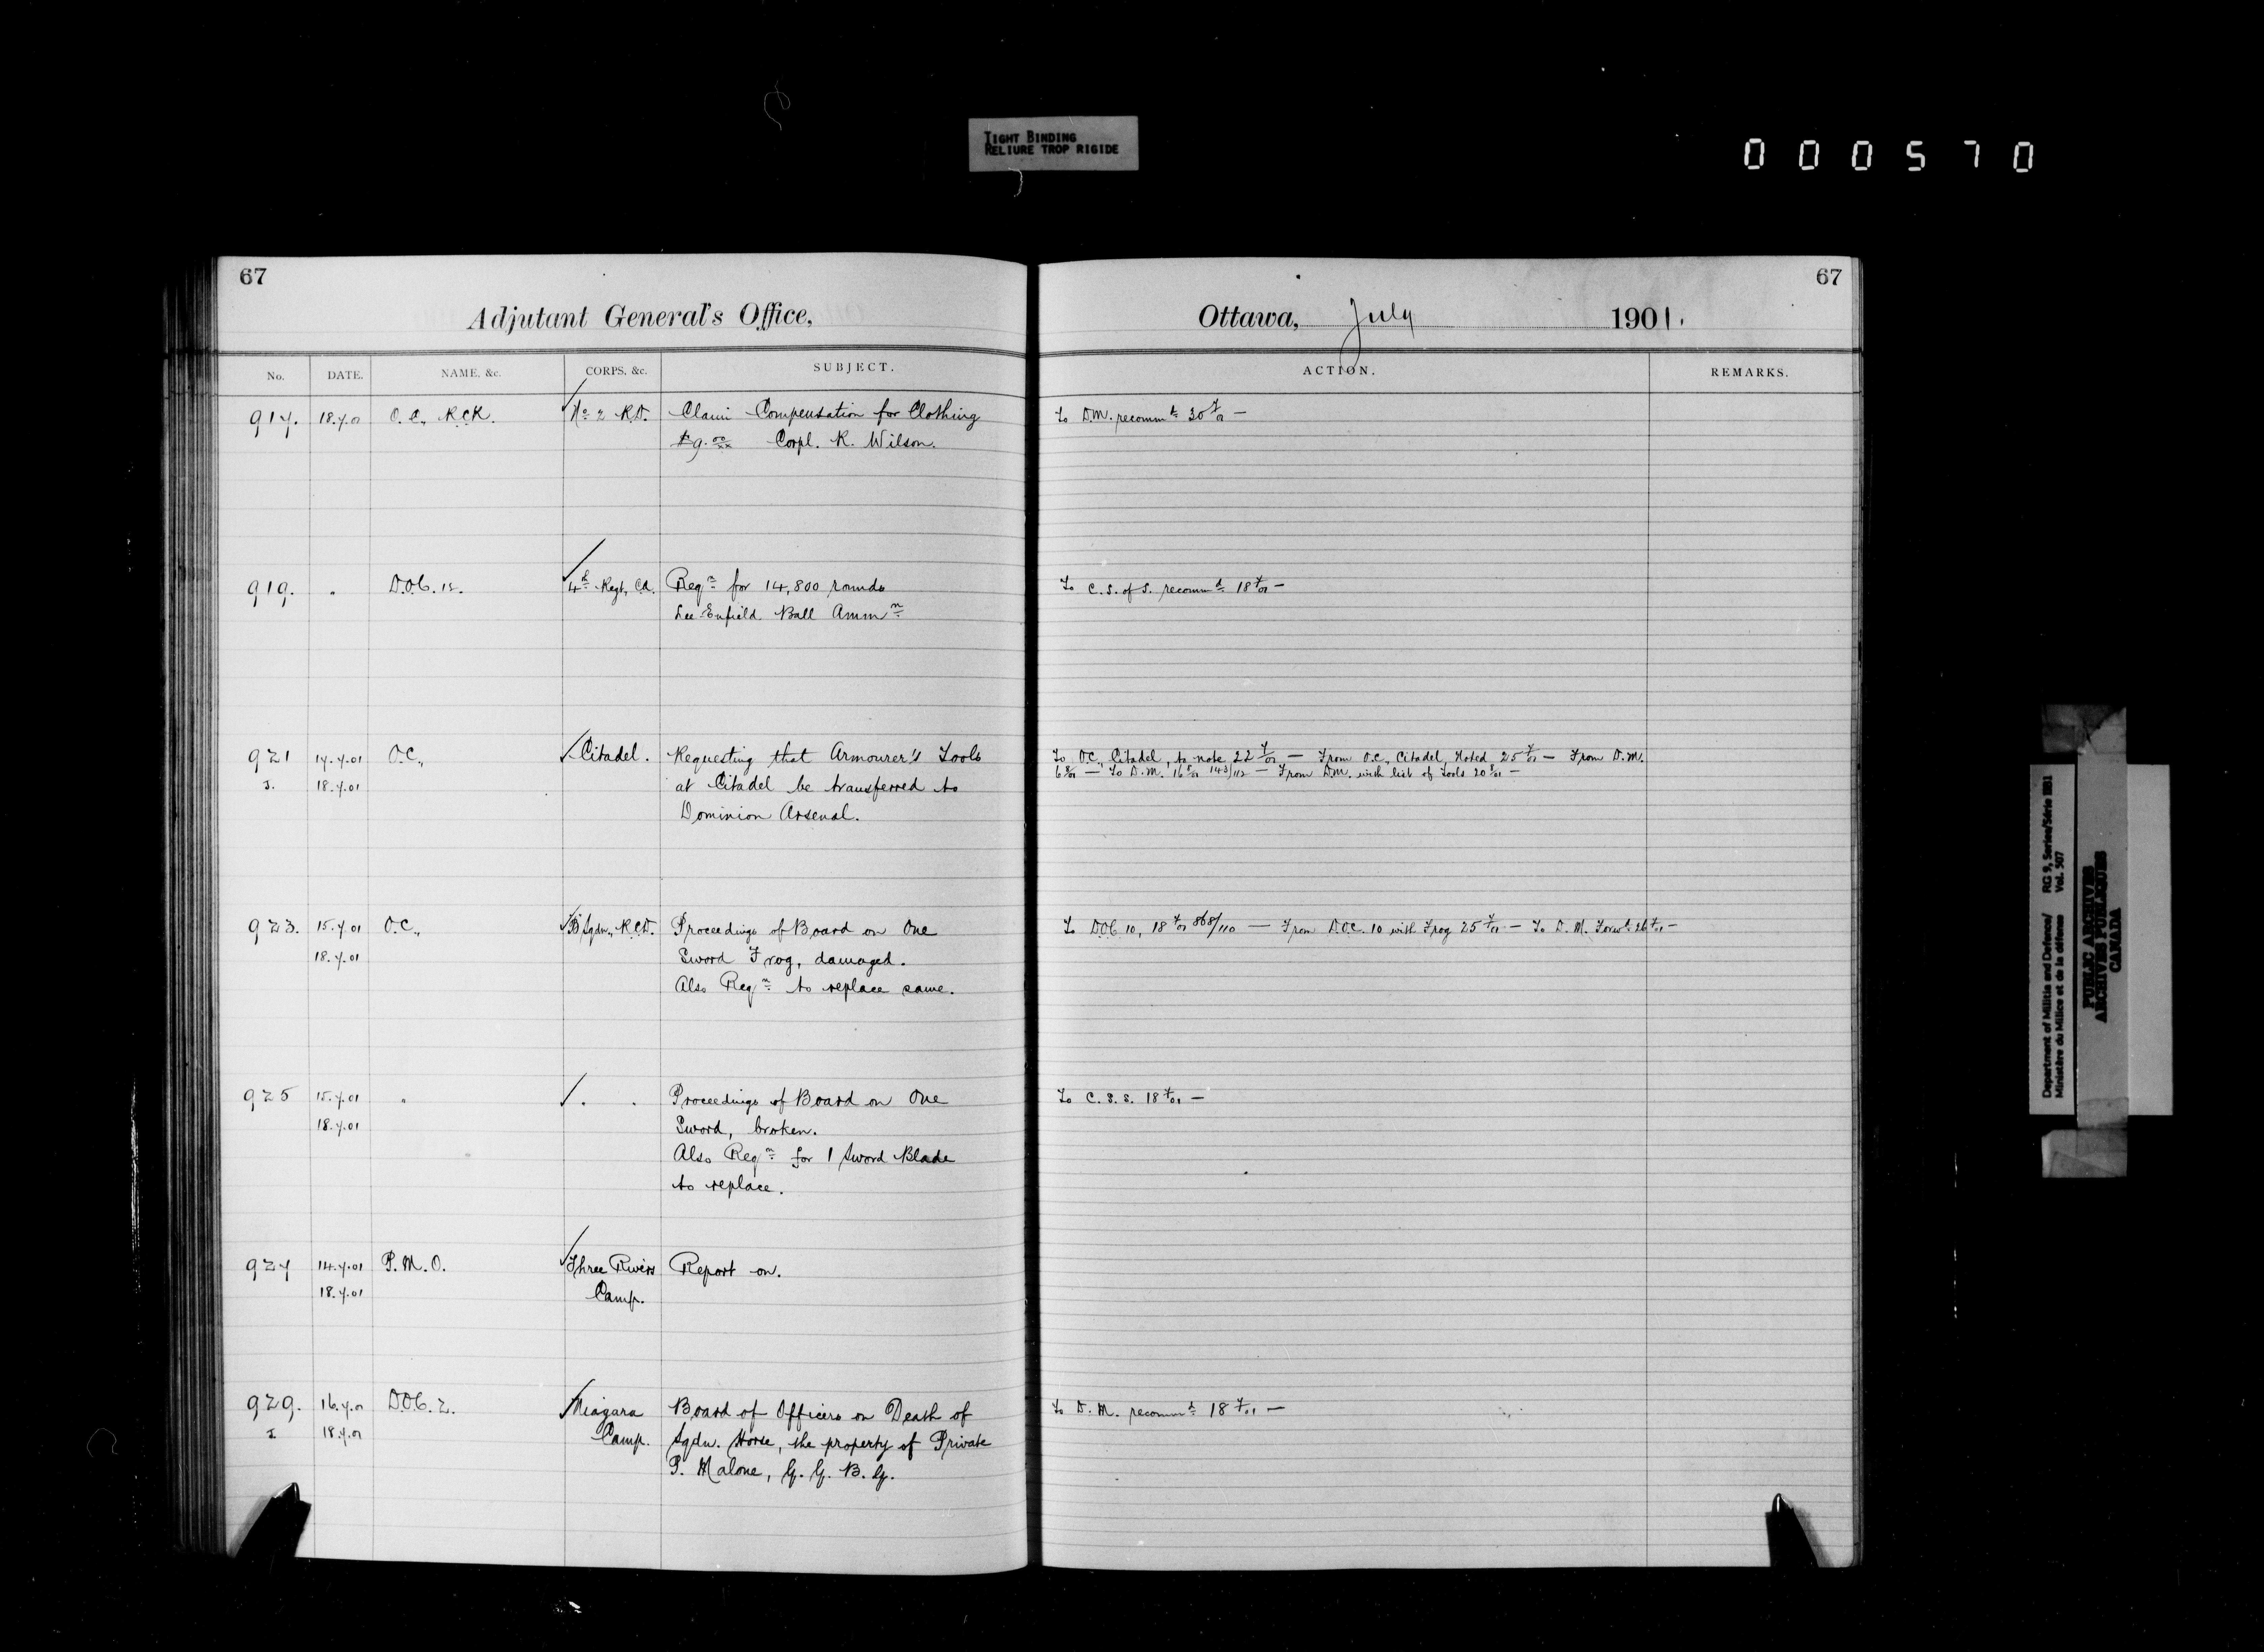 TIGHT BINDING
RELIURE TROP RIGIDE
000570
67
Adjutant General's Office,
No. DATE. NAME, &c. CORPS, &c. SUBJECT.
917. 18.7.01 O.C., R.C.R. No 2 R.D. Claim Compensation for Clothing
$9.00/xx Corpl. R. Wilson.
919. " D.O.C. 12. 4th Regt, C.A. Reqn for 14,800 rounds
Lee-Enfield Ball Ammn
921 17.7.01 O.C., Citadel. Requesting that Armourer's Tools
18.7.01 at Citadel be transferred to
Dominion Arsenal.
923. 15.7.01 O.C., "B" Sqdn., R.C.D. Proceedings of Board on One
18.7.01 Sword Frog, damaged.
Also Reqn to replace same.
925 15.7.01 " " " Proceedings of Board on One
18.7.01 Sword, broken.
Also Reqn for 1 Sword Blade
to replace.
927 14.7.01 P.M.O. Three Rivers Report on.
18.7.01 Camp.
929. 16.7.01 D.O.C. 2. Niagara Board of Officers on Death of
18.7.01 Camp. Sqdn. Horse, the property of Private
P. Malone, G.G.B.G.
67
Ottawa, July 1901.
ACTION. REMARKS.
To D.M. recommd 30 7/01 —
To C.S. of S. recommd 18 7/01 —
To O.C., Citadel, to note 22 7/01 — From O.C., Citadel, Noted 25 7/01 — From D.M.
6 8/01 — To D.M. 16 8/01 143/112 — From D.M. with list of Tools 20 8/01 —
To D.O.C. 10, 18 7/01 868/110 — From D.O.C. 10 with Frog 25 7/01 — To D.M. Forwd 26 7/01 —
To C.S.S. 18 7/01 —
To D.M. recommd 18 7/01 —
Department of Militia and Defence/ RG 9, Series/Série IIB1
Ministère du Milice et de la défense Vol. 507
PUBLIC ARCHIVES
ARCHIVES PUBLIQUES
CANADA